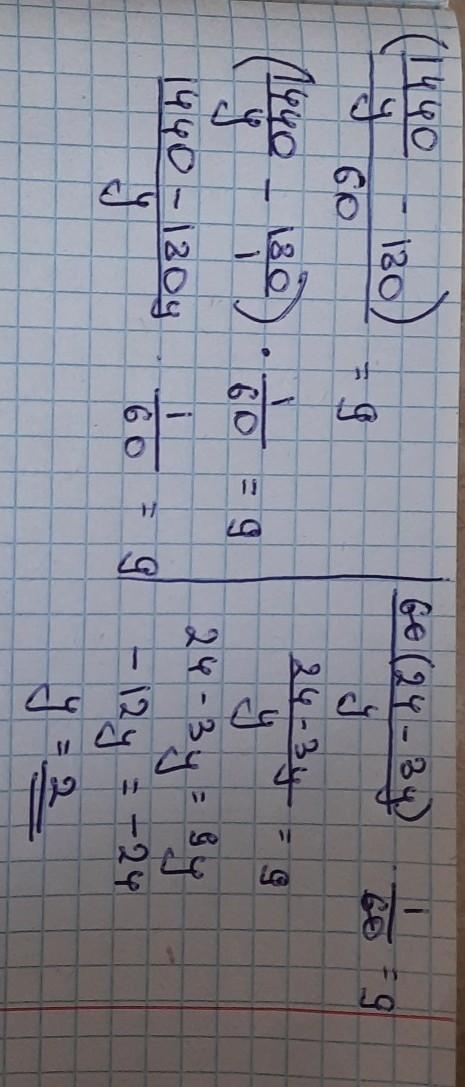 (1440/y - 180)/60 = 9
(1440/y - 180/1) · 1/60 = 9
(1440 - 180y)/y · 1/60 = 9
60(24 - 3y)/y · 1/60 = 9
(24 - 3y)/y = 9
24 - 3y = 9y
- 12y = - 24
y = 2